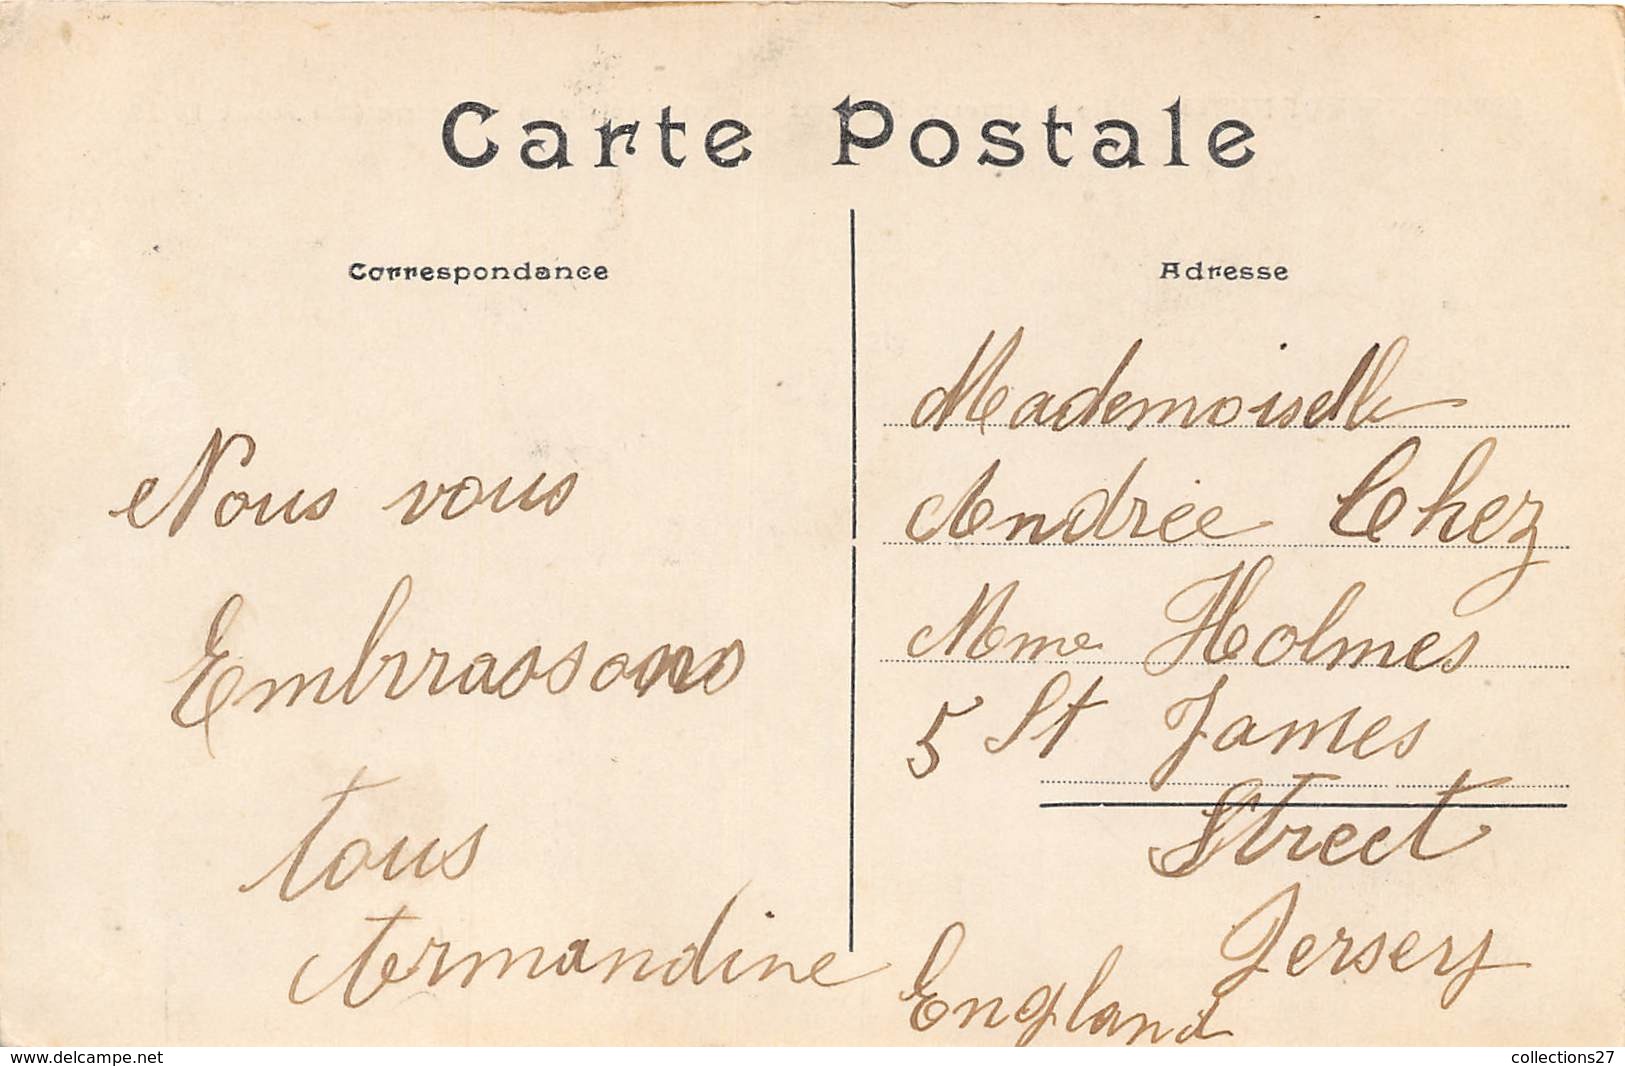 Carte Postale
Correspondance
Nous vous
Embrrassons
tous
Armandine
Adresse
Mademoiselle
Andrée Chez
Mme Holmes
5 St James
Street
Jersey
England
www.delcampe.net
collections27